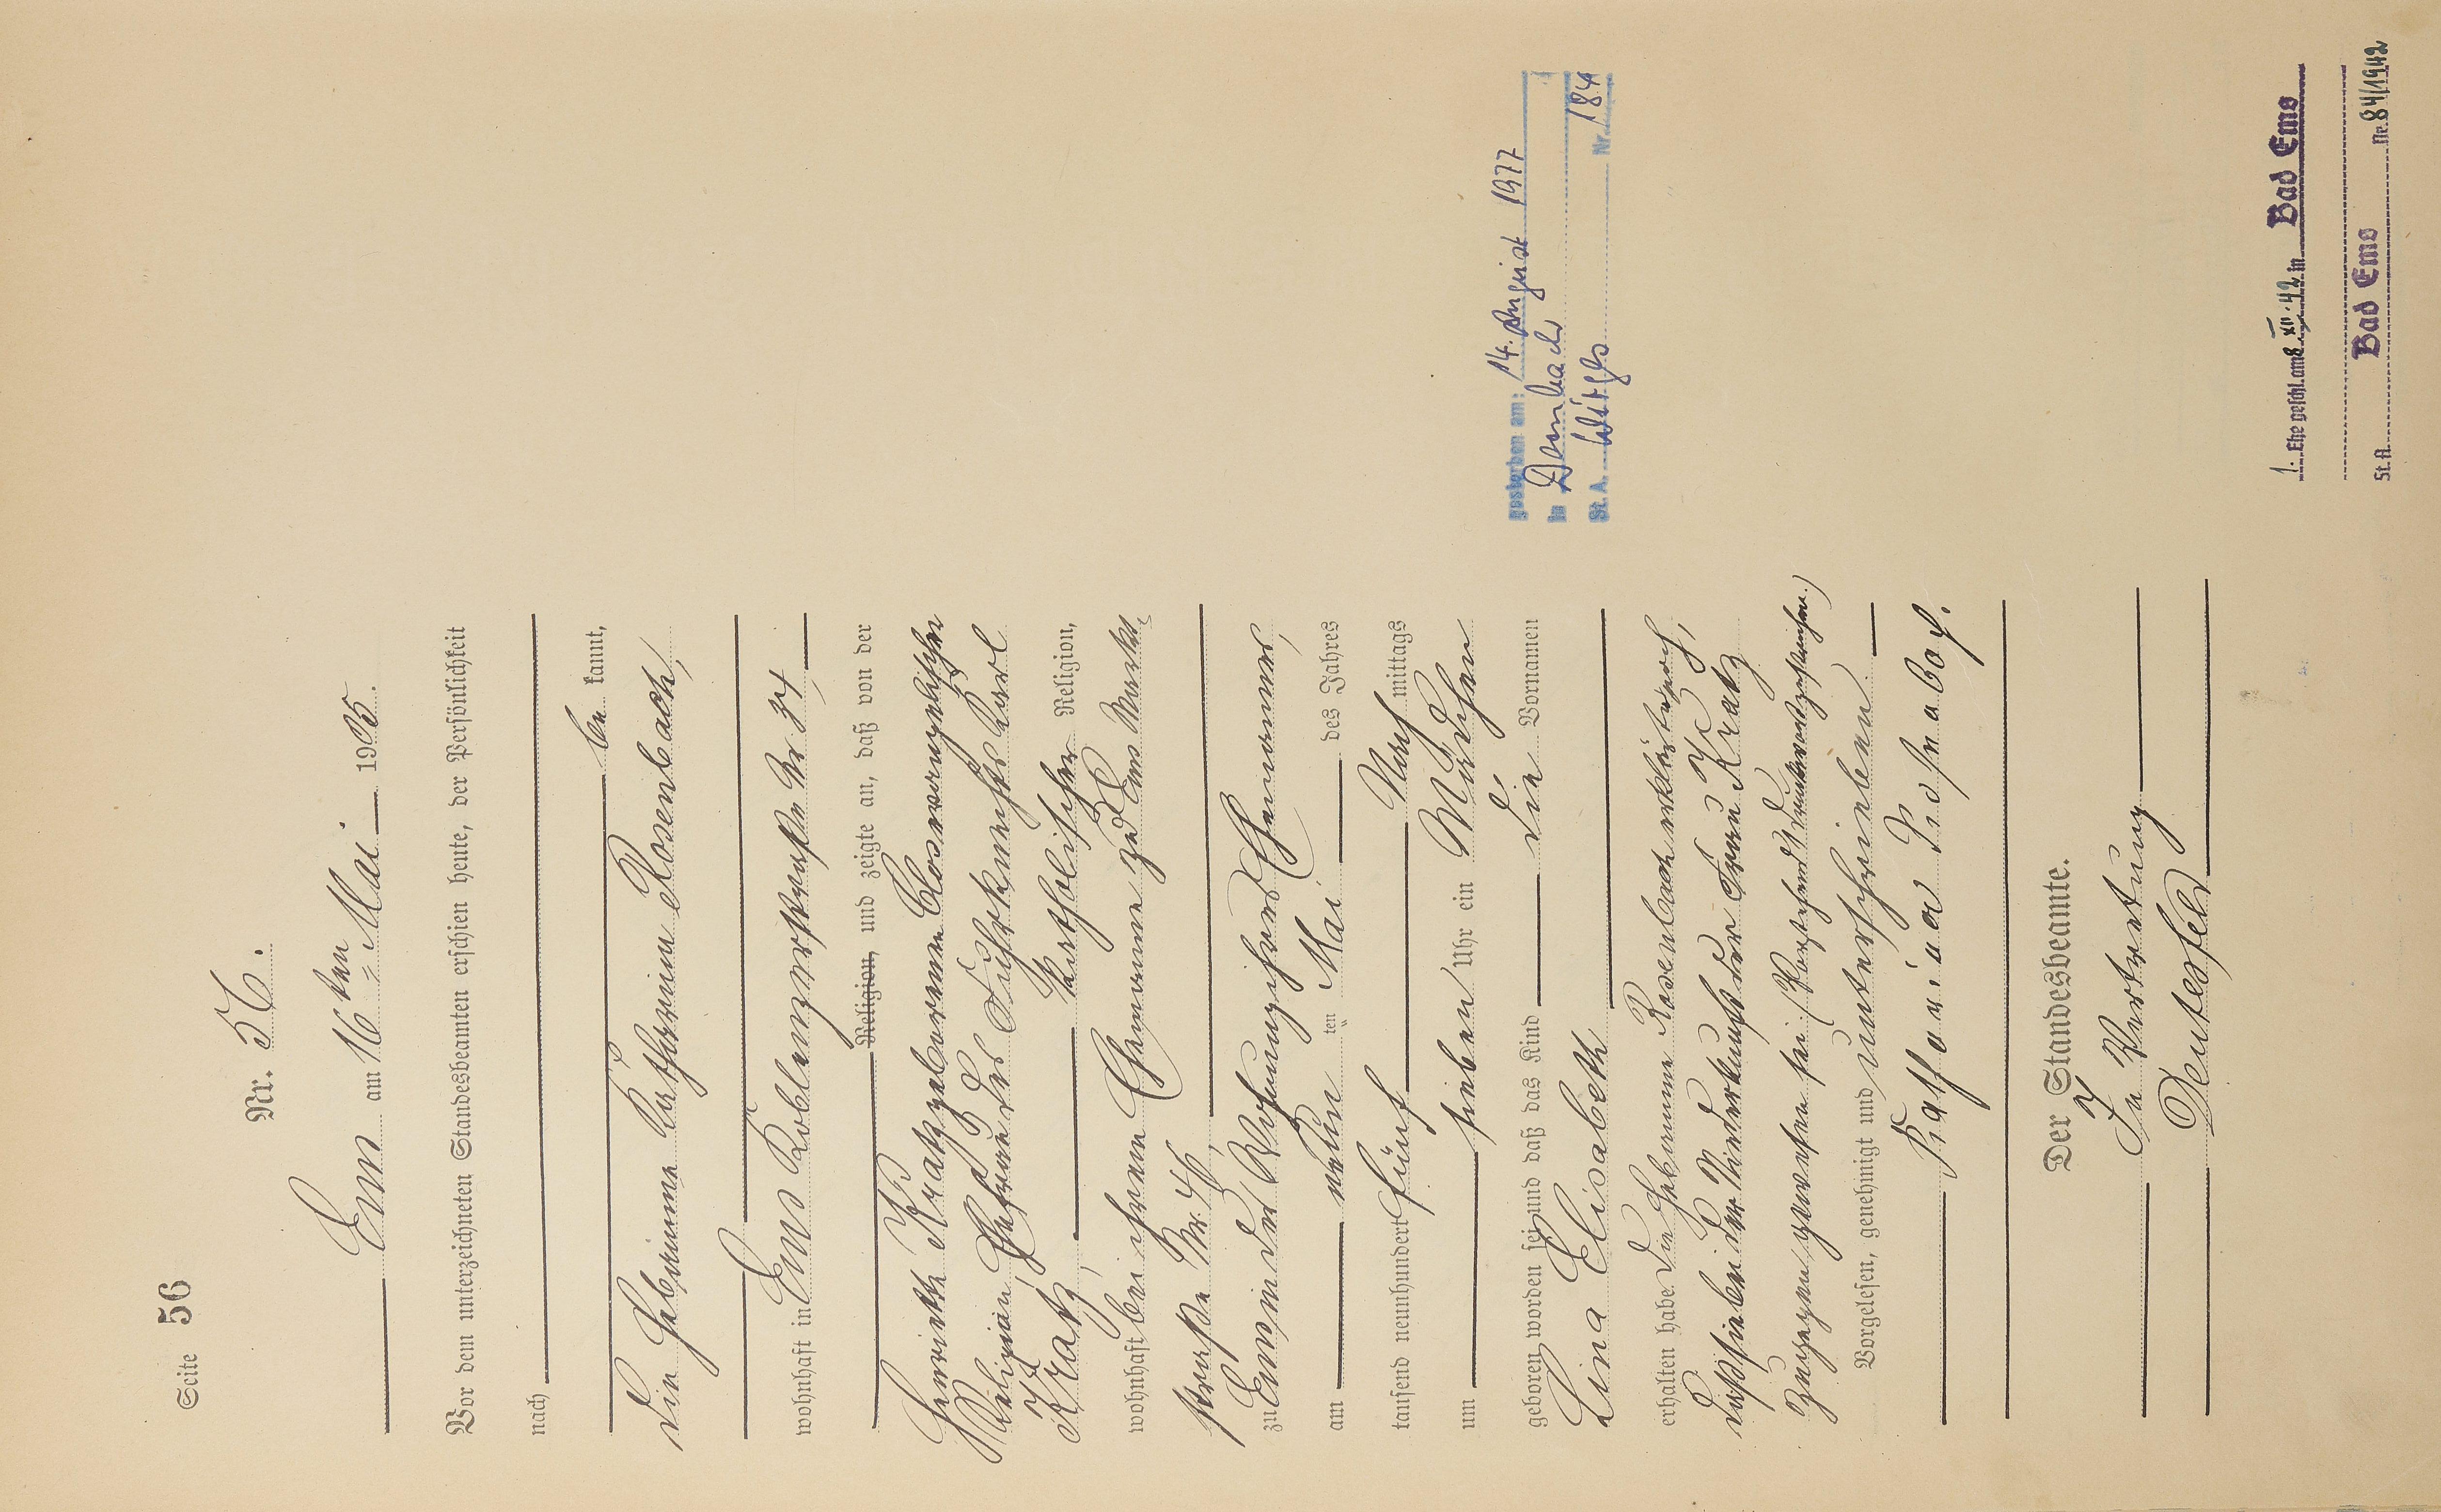 Seite 56
Nr. 56.
Ems am 16ten Mai 1905.
Vor dem unterzeichneten Standesbeamten erschien heute, der Persönlichkeit
nach
be kannt,
die Hebamme Katharina Rosenbach,
wohnhaft in Ems Koblenzerstraße Nr 34,
Religion, und zeigte an, daß von der
Henriette Kratz geborenen Clos evangelischer
Religion, Ehefrau des Fuhrknechts Karl
Kratz, katholischer Religion,
wohnhaft bei ihrem Ehemanne zu Ems Markt-
straße Nr. 46,
zu Ems in der Wohnung ihres Ehemannes,
am neun ten Mai des Jahres
tausend neunhundert fünf Nach mittags
um sieben Uhr ein Mädchen
geboren worden sei und daß das Kind die Vornamen
Lina Elisabeth
erhalten habe. Die Hebamme Rosenbach erklärte noch,
daß sie bei der Niederkunft der Frau Kratz
zugegen gewesen sei. (Vorstehend 1 Druckwort gestrichen.)
Vorgelesen, genehmigt und unterschrieben.
Katharina Rosenbach.
Der Standesbeamte.
In Vertretung
gestorben am: 14. August 1977
in Dernbach
St. A. Wirges Nr. 184
1. Ehe geschl. am 8. XII. 42 in Bad Ems
St. A. Bad Ems Nr. 84/1942